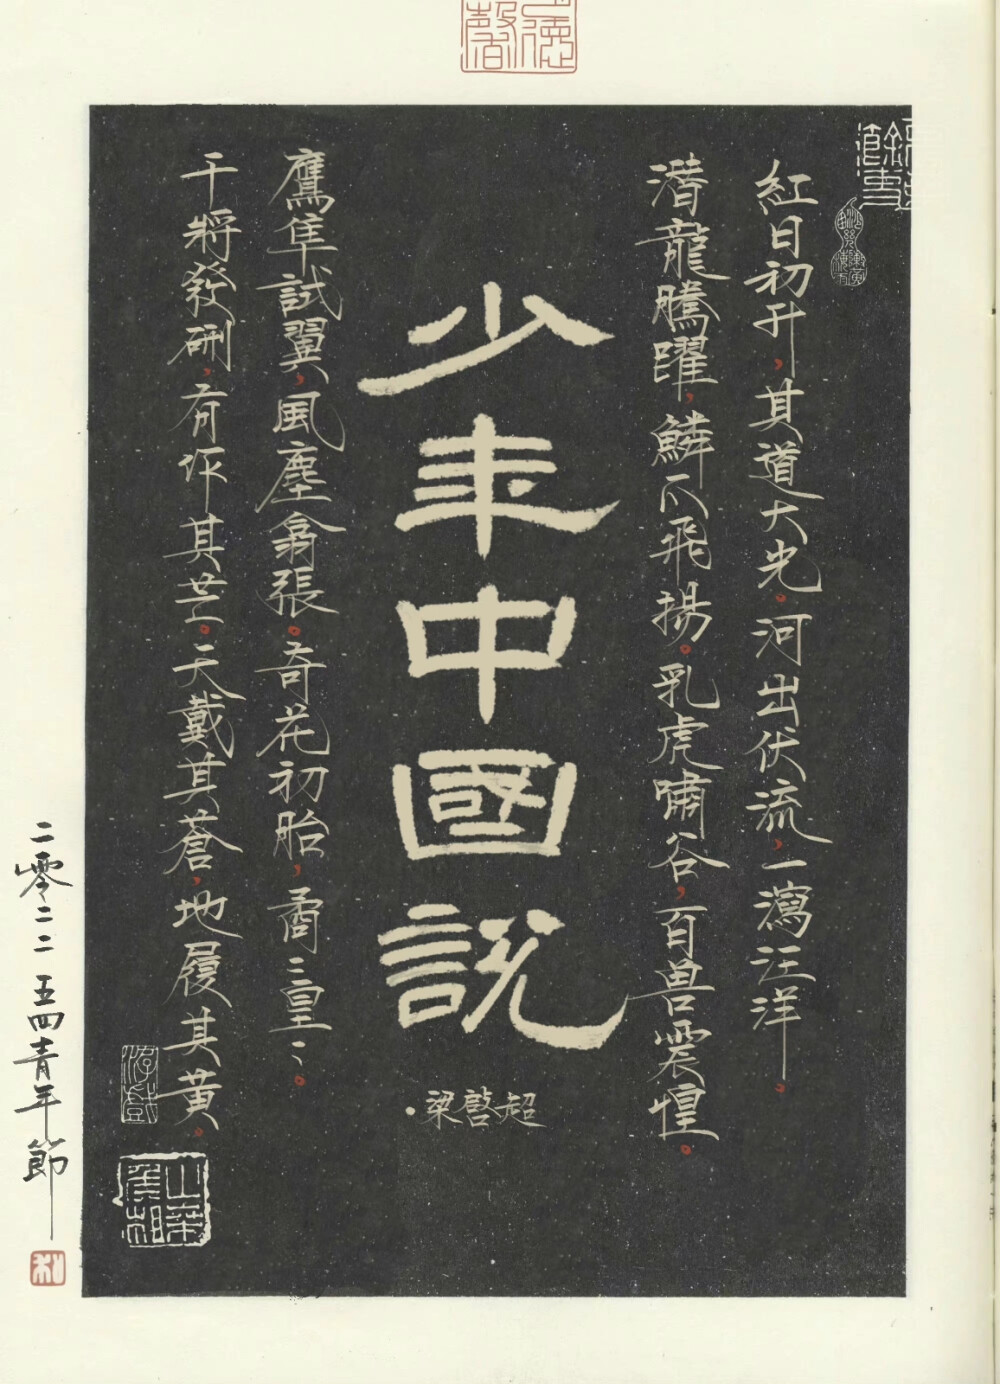 紅日初升，其道大光。河出伏流，一瀉汪洋。
潛龍騰躍，鱗爪飛揚。乳虎嘯谷，百兽震惶。
少年中國説
·梁啓超
鷹隼試翼，風塵翕張。奇花初胎，矞矞皇皇。
干將發硎，有作其芒。天戴其蒼，地履其黄。
二零二二五四青年節